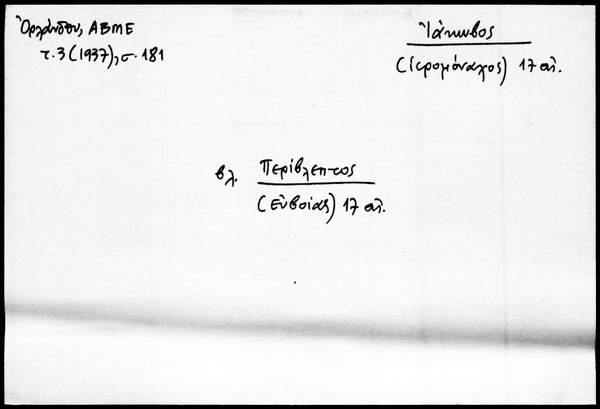 Ὀρλάνδου, ΑΒΜΕ
τ. 3 (1937), σ. 181
Ἰάκωβος
(ἱερομόναχος) 17 αἰ.
βλ. Περίβλεπτος
(Εὐβοίας) 17 αἰ.